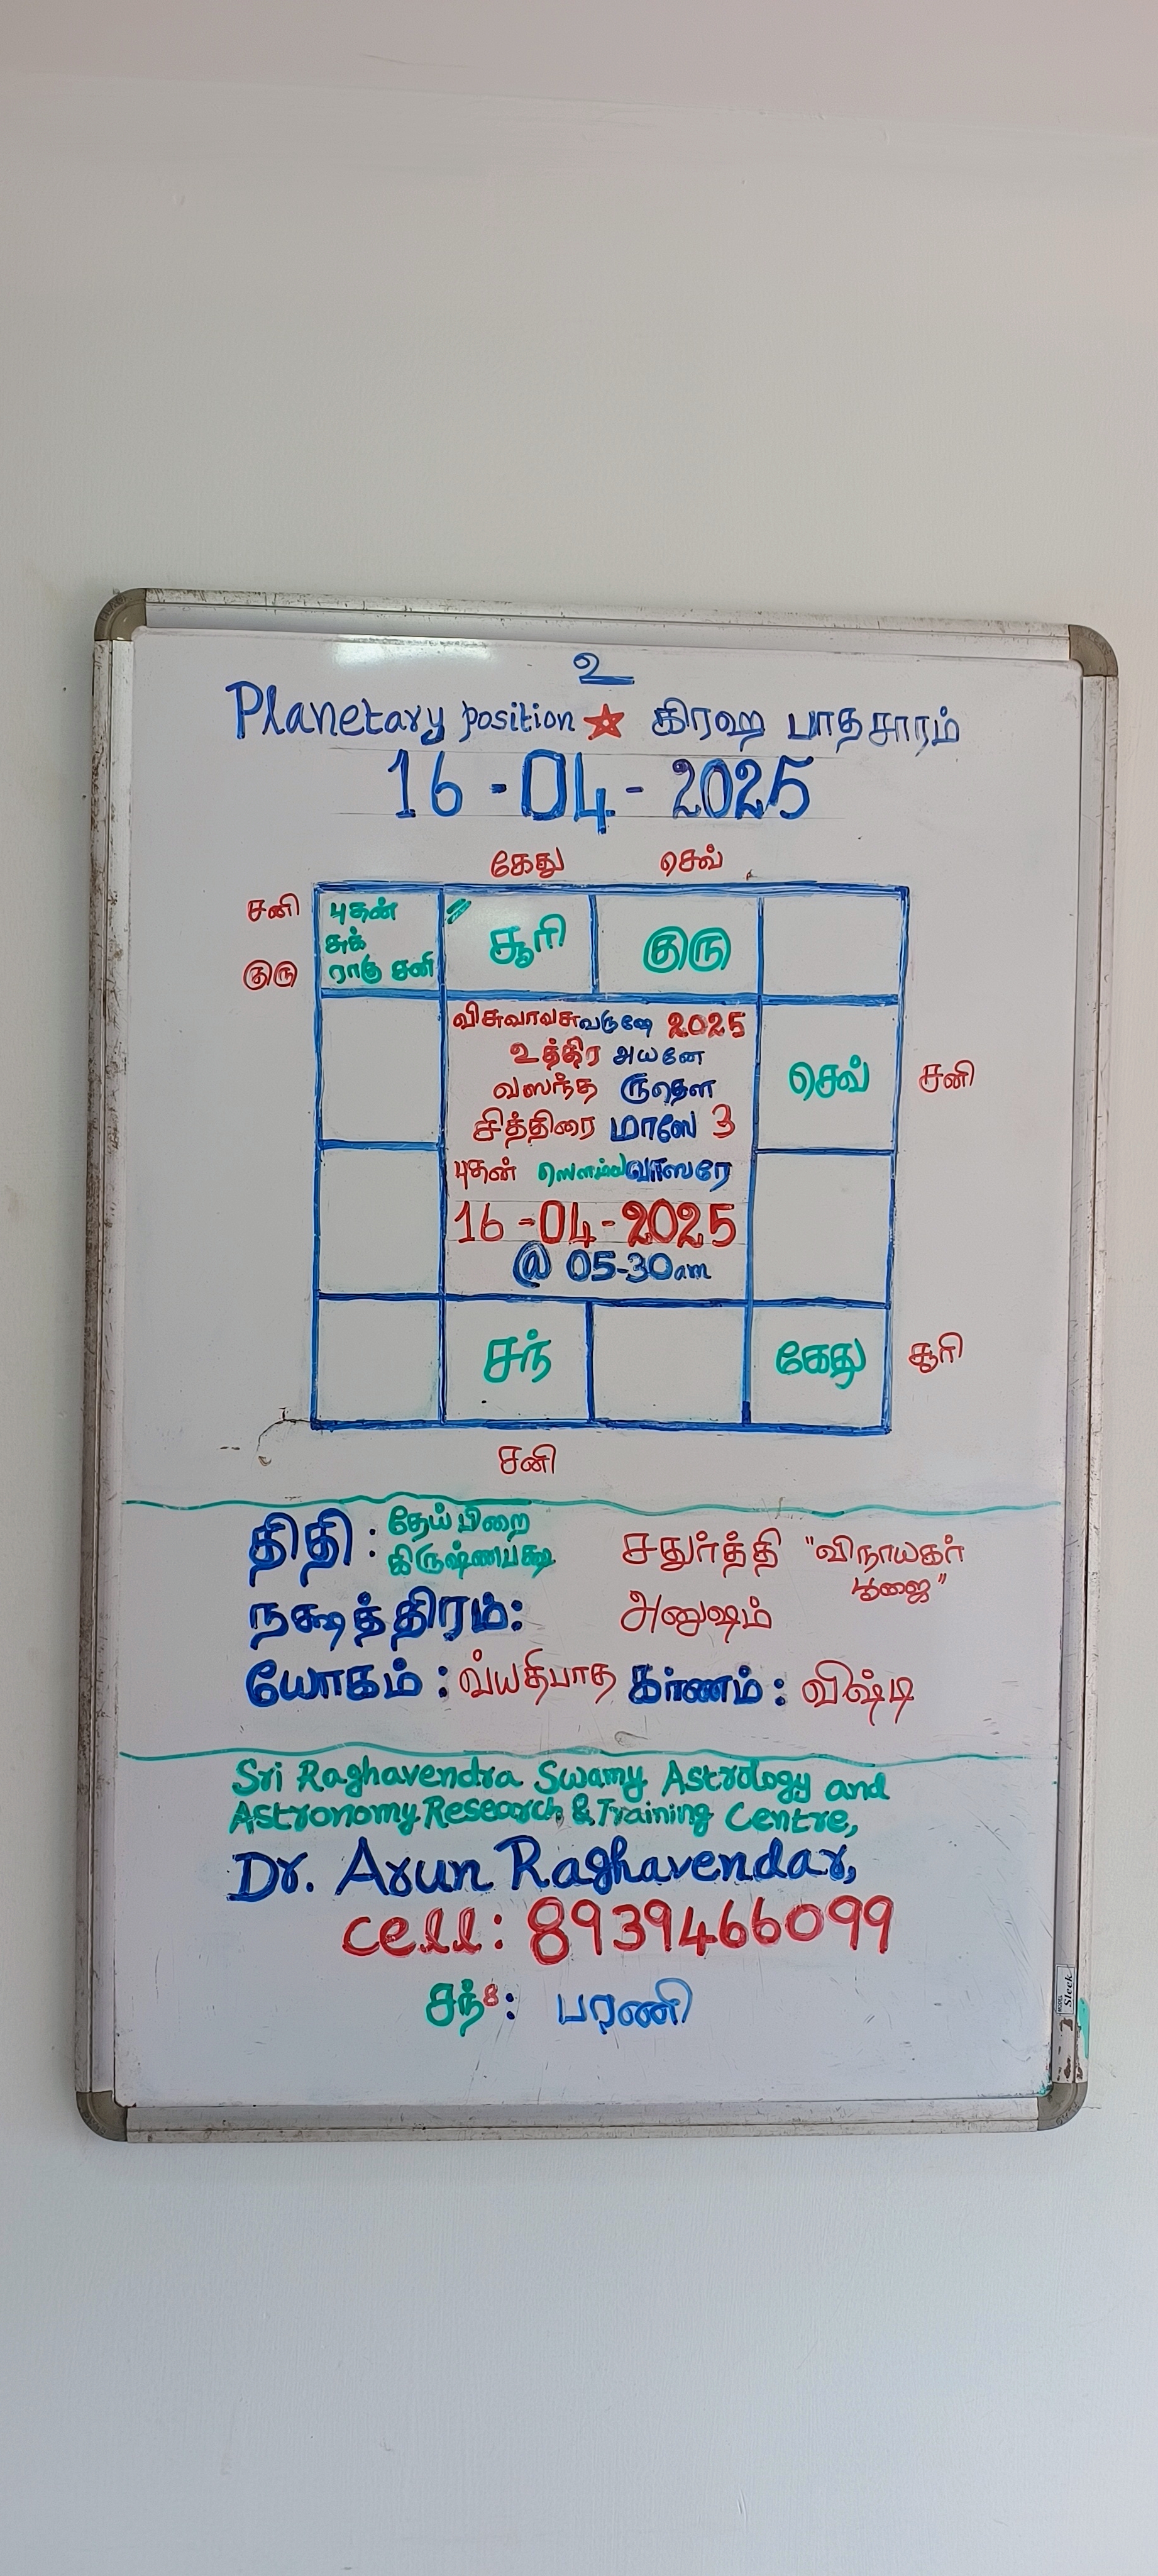 உ
Planetary position ★ கிரஹ பாதசாரம்
16-04-2025
கேது செவ்
சனி புதன் சூரி குரு
சுக்
குரு ராகு சனி
விசுவாவசுவருஷே 2025
உத்திர அயனே
வஸந்த ருதௌ செவ் சனி
சித்திரை மாஸே 3
புதன் ஸௌம்ய வாஸரே
16-04-2025
@ 05-30am
சந் கேது சூரி
சனி
திதி : தேய்பிறை சதுர்த்தி "விநாயகர்
கிருஷ்ணபக்ஷ பூஜை"
நக்ஷத்திரம்: அனுஷம்
யோகம் : வ்யதிபாத கர்ணம் : விஷ்டி
Sri Raghavendra Swamy Astrology and
Astronomy Research & Training Centre,
Dr. Arun Raghavendar,
cell: 8939466099
சந்8: பரணி
Sleek